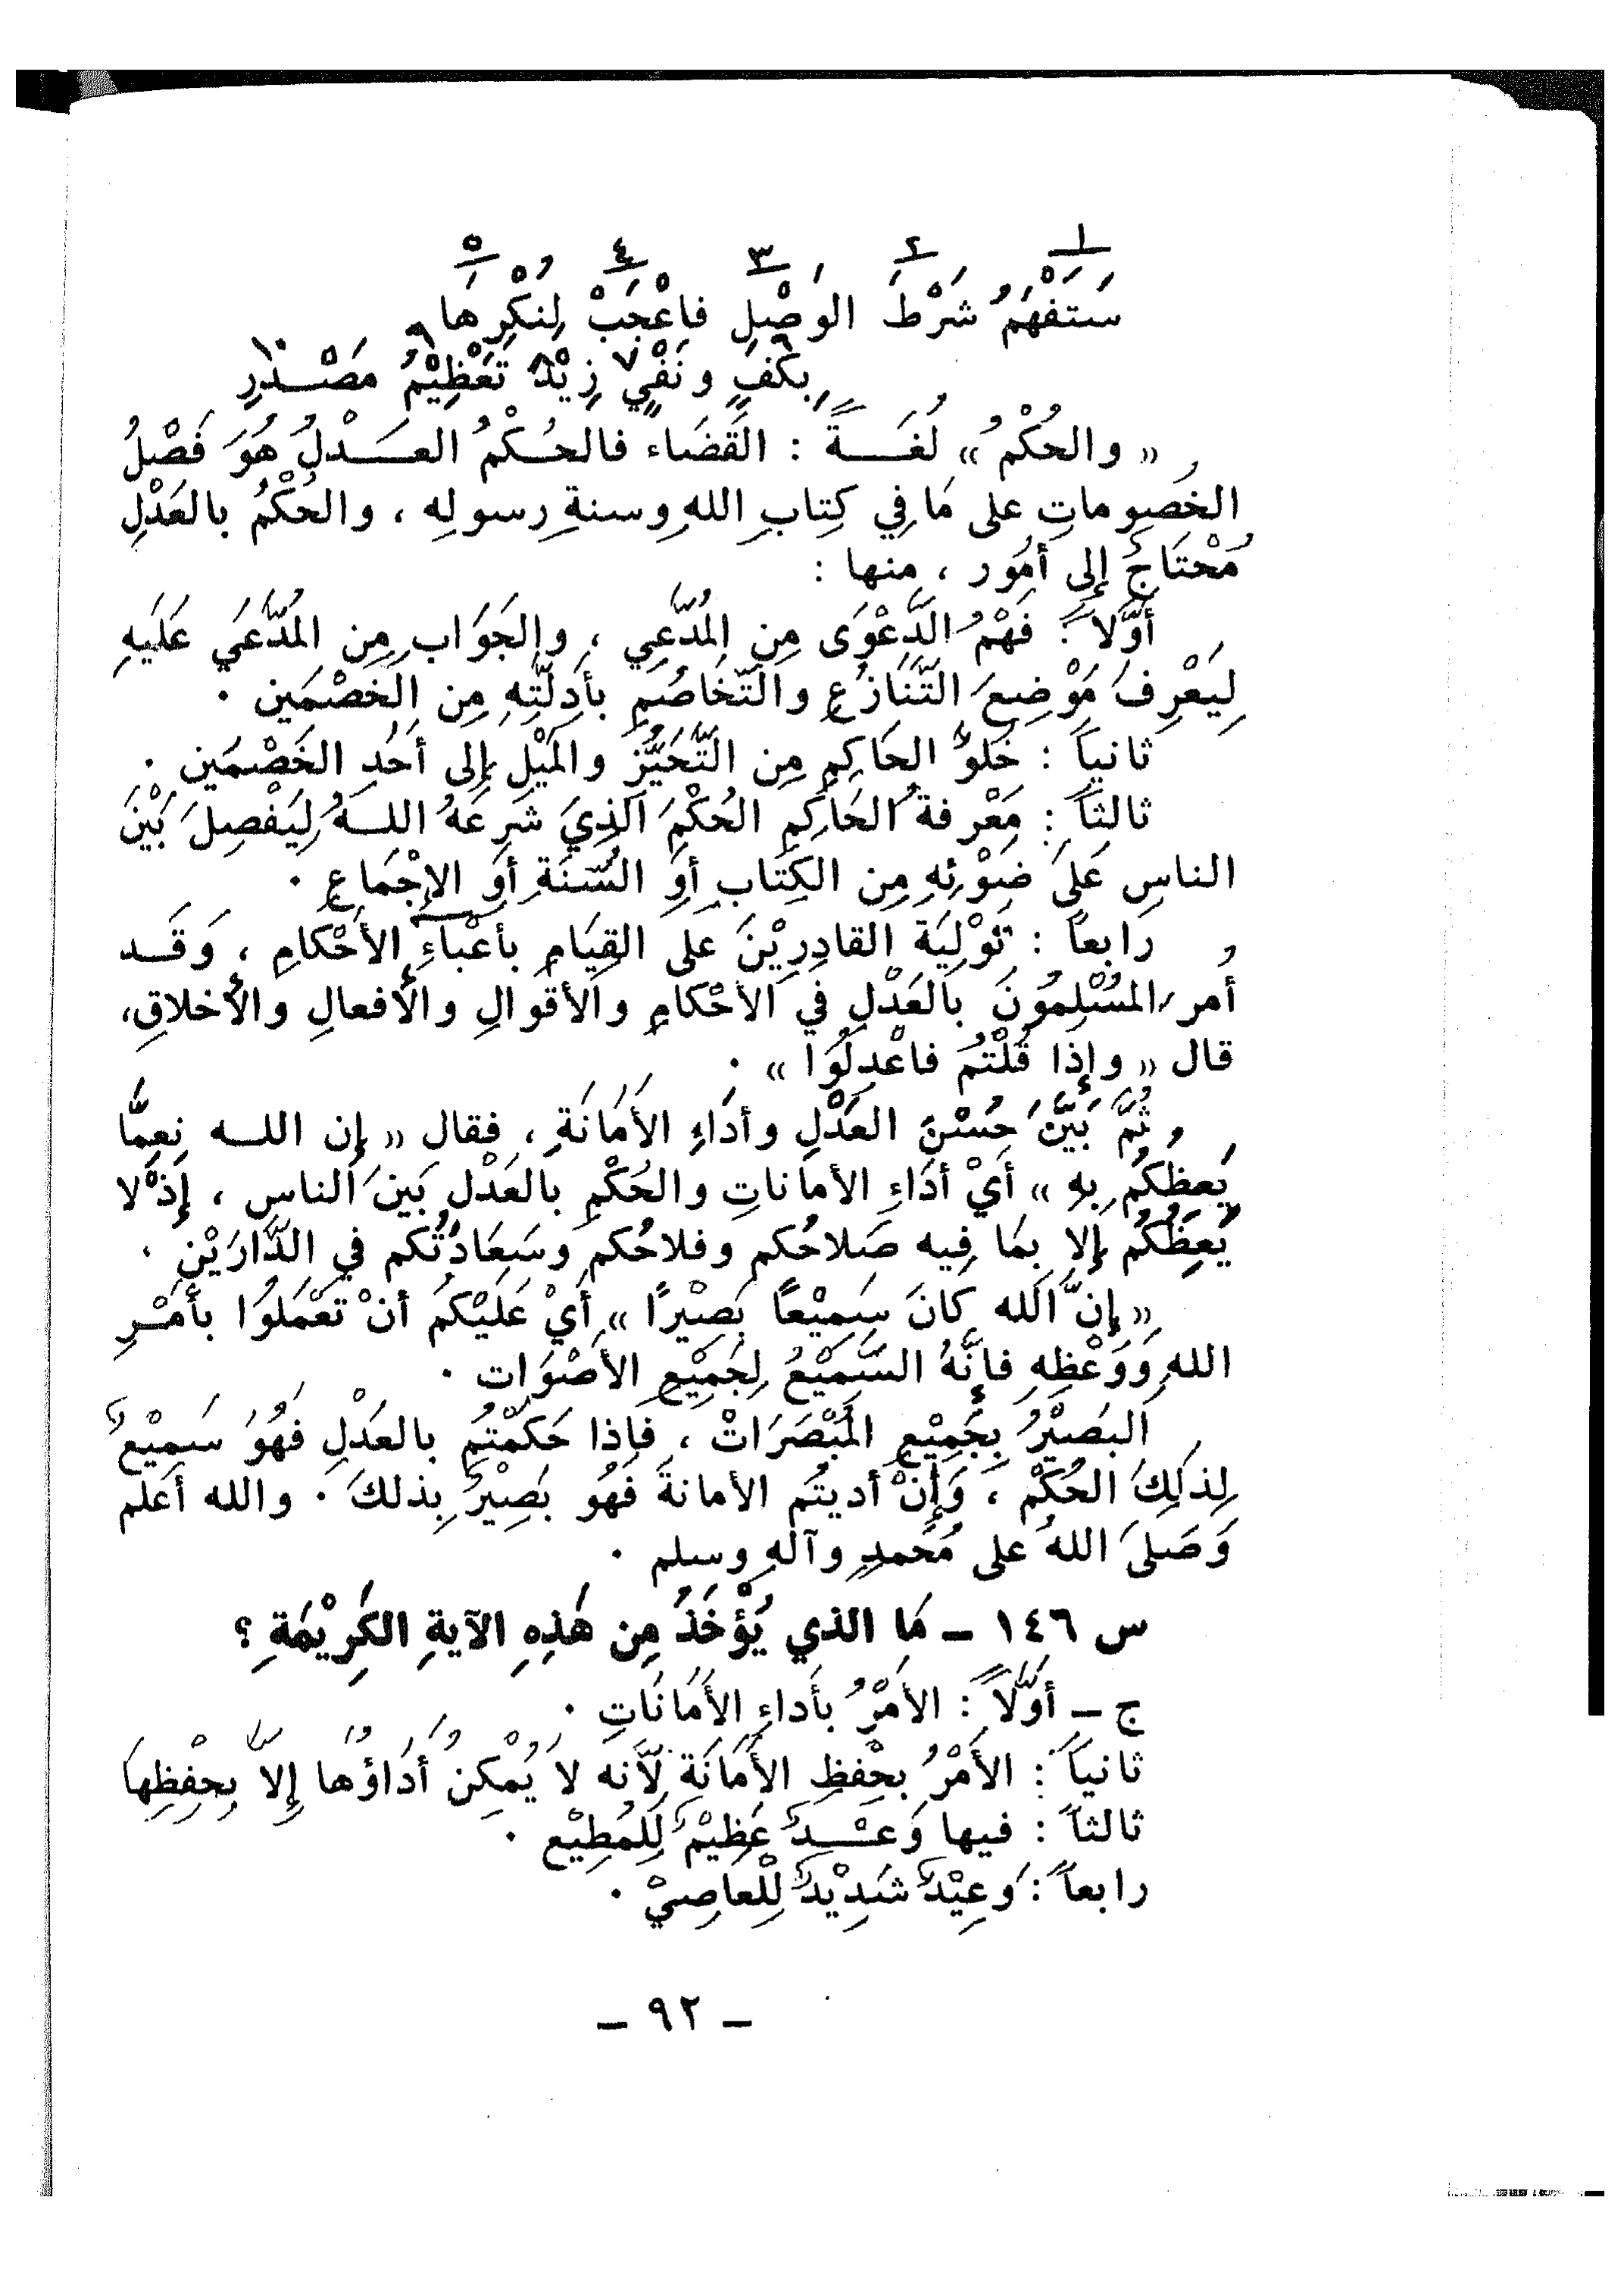 ١ ٢ ٣ ٤ ٥
سَتَفْهَمُ شَرْطَ الوَصْلِ فاعْجَبْ لِنُكْرِهَا
٦ ٧ ٨ ٩ ١٠
بِكَفٍّ ونَفْيٍ زِيْدَ تَعْظِيْمُ مَصْدَرِ
« والحُكْمُ » لُغَةً : القَضَاء فالحُكْمُ العَدْلُ هُوَ فَصْلُ
الخصوماتِ على مَا في كِتابِ اللهِ وسنةِ رسولِهِ ، والحُكْمُ بالعَدْلِ
مُحْتَاجٌ إلى أمُور ، مِنها :
أوَّلاً : فَهْمُ الدَّعْوَى مِن المُدَّعِي ، والجَوَاب مِن المُدَّعَي عَلَيهِ
لِيَعْرِفَ مَوْضِعَ التَّنَازُعِ والتَّخَاصُمِ بأدِلَّتِهِ مِن الخَصْمَين .
ثانياً : خُلوُّ الحَاكِمِ مِن التَّحَيُّزِ والمَيْلِ إلى أحَدِ الخَصْمَين .
ثالثاً : مَعْرفةُ الحَاكِمِ الحُكْمَ الذِي شَرعَهُ اللهُ لِيَفْصِلَ بَيْنَ
الناسِ عَلَى ضَوْئِهِ مِن الكِتَابِ أوِ السُّنَةِ أوِ الإجْمَاعِ .
رابعاً : تَوْلِيَة القادِرِيْنَ على القِيَامِ بأعْبَاءِ الأحْكامِ ، وَقَد
أُمر المُسْلِمُونَ بالعَدْلِ في الأحْكامِ والأقْوالِ والأفعالِ والأخلاقِ،
قال « وإذا قُلْتُمْ فاعْدِلُوا » .
ثُمَّ بَيَّنَ حُسْنَ العَدْلِ وأدَاءِ الأمَانَةِ ، فقال « إن الله نِعِمَّا
يَعِظُكُم بِهِ » أيْ أدَاءِ الأماناتِ والحُكْمِ بالعَدْلِ بَينَ الناسِ ، إذْ لا
يَعِظُكُمْ إلا بِمَا فِيه صَلاحُكم وفلاحُكم وسَعَادَتُكم في الدَّارَيْنِ .
« إنَّ الله كانَ سَمِيْعًا بَصِيْرًا » أيْ عَلَيْكمُ أنْ تَعْمَلُوا بأمْرِ
اللهِ وَوَعْظِهِ فإنَّهُ السَّمِيْعُ لِجَمِيْعِ الأصْوَات .
البَصِيْرُ بِجَمِيْعِ المُبْصَرَاتْ ، فإذا حَكَمْتُم بالعَدْلِ فَهُوَ سَمِيْعٌ
لِذَلِكَ الحُكْمْ ، وَإنْ أديتُم الأمانةَ فَهُو بَصِيْرٌ بِذلكَ . والله أعلم
وَصَلَى اللهُ على مُحَمدٍ وآلهِ وسلم .
س ١٤٦ – مَا الذي يُؤْخَذُ مِن هَذِهِ الآيةِ الكَرِيْمَةِ ؟
ج – أوَّلاً : الأمْرُ بأداءِ الأمَانَاتِ .
ثانياً : الأمْرُ بحْفظِ الأمَانَةِ لأنَه لا يُمْكِنُ أدَاؤُها إلاَّ بِحْفِظِهَا
ثالثاً : فيها وَعْدٌ عَظِيْمٌ لِلمُطِيْعِ .
رابعاً : وَعِيْدٌ شَدِيْدٌ لِلْعَاصِيْ .
– ٩٢ –